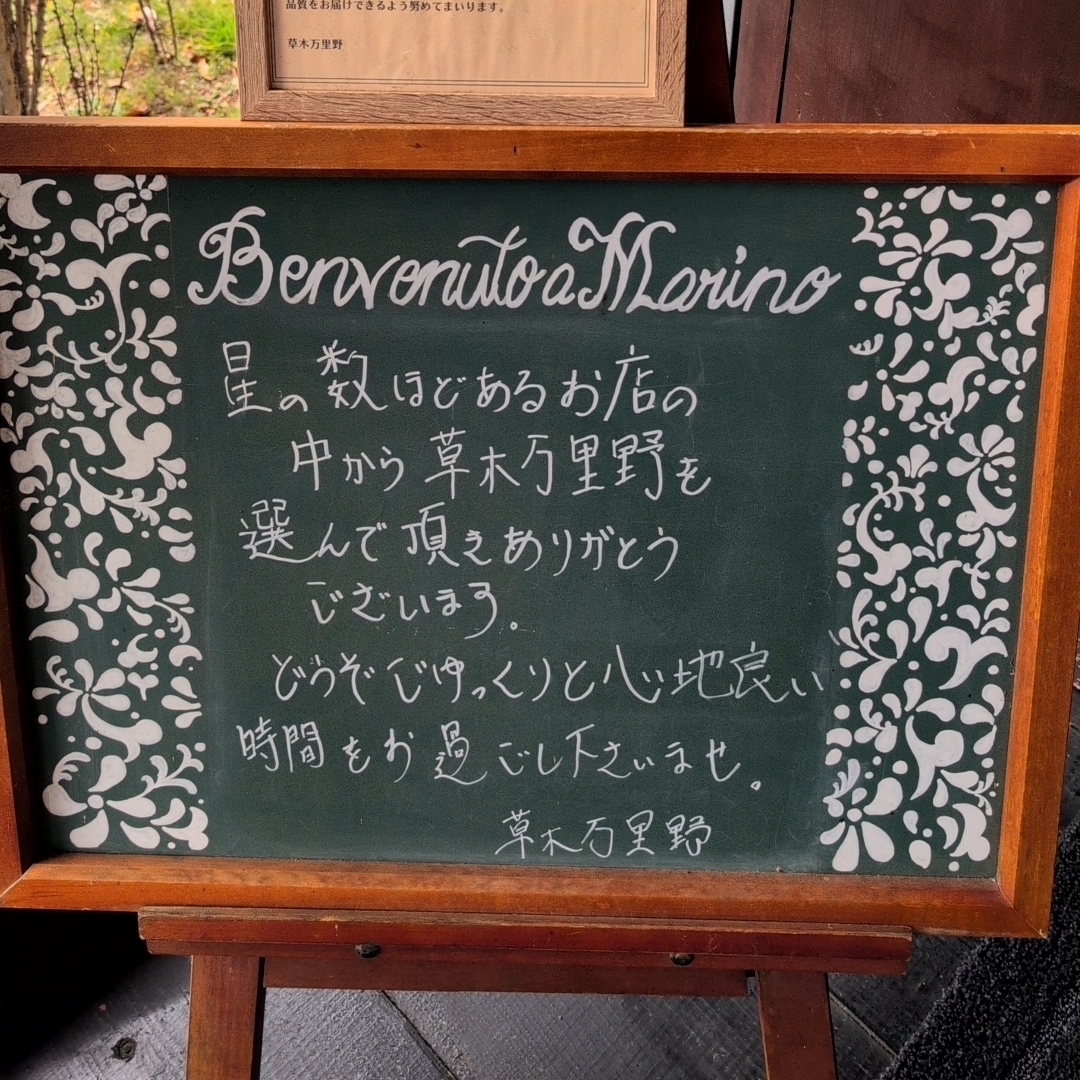 品質をお届けできるよう努めてまいります。
草木万里野
Benvenuto a Marino
星の数ほどあるお店の
中から草木万里野を
選んで頂きありがとう
ございます。
どうぞごゆっくりと心地良い
時間をお過ごし下さいませ。
草木万里野